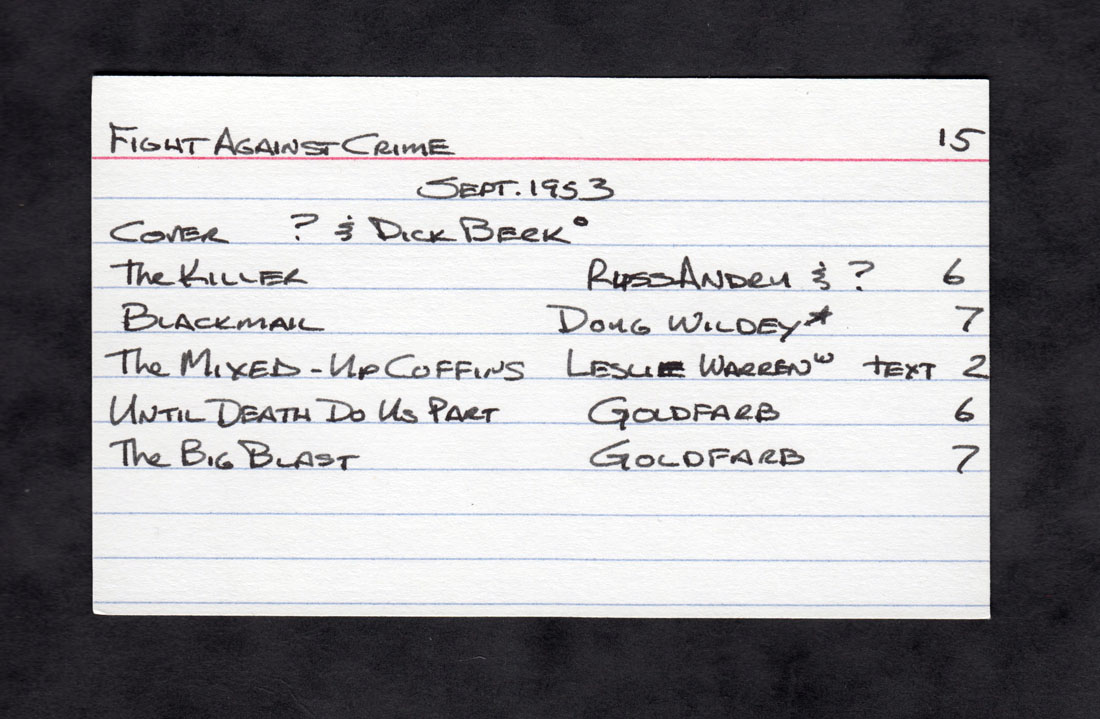 Fight Against Crime 15
Sept. 1953
Cover ? & Dick Beck°
The Killer Ross Andru & ? 6
Blackmail Doug Wildey* 7
The Mixed-Up Coffins Leslie Warrenʷ text 2
Until Death Do Us Part Goldfarb 6
The Big Blast Goldfarb 7